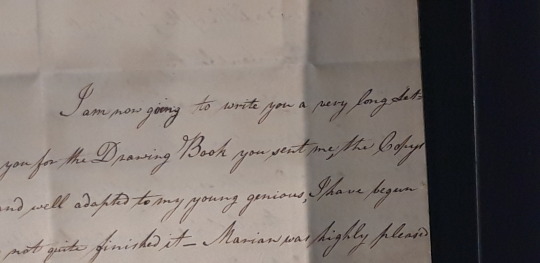 I am now going to write you a very long Let=
you for the Drawing Book you sent me, the Copys
and well adapted to my young genious, I have begun
not quite finished it – Marian was highly pleased